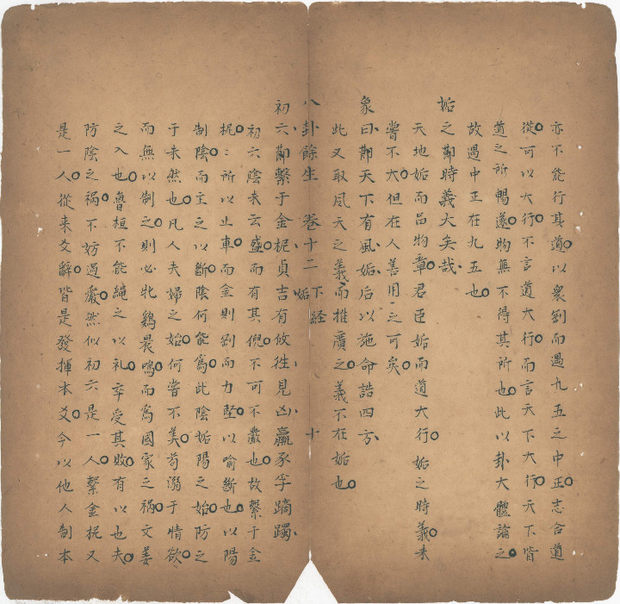 亦不能行其道以衆剝而遇九五之中正志合道
從可以大行不言道大行而言天下大行天下皆
道之所暢遂物無不得其所也此以卦大體論之
故遇中正在九五也
姤之鄿時義大矣哉
天地姤而品物章君臣姤而道大行姤之時義未
嘗不大但在人善用之可矣
象曰鄿天下有風姤后以施命誥四方
此又取風天之義而推廣之義不在姤也
八卦餘生 卷十二 下經 姤 十
初六鄿繫于金柅貞吉有攸徃見凶羸豕孚蹢躅
初六陰未云盛而有其倪不可不嚴也故繫于金
柅:所以止車而金則剛而力堅以喻斷也以陽
制陰而主之以斷陰何能爲此陰姤陽之始防之
于未然也凡人夫婦之始何嘗不美苟溺于情欲
而無以制之則必牝鷄晨鳴而爲國家之禍文姜
之入也魯桓不能繩之以礼卒受其敗有以也夫
防陰之禍不妨過嚴然似初六是一人繫金柅又
是一人從来爻辭皆是發揮本爻今以他人制本